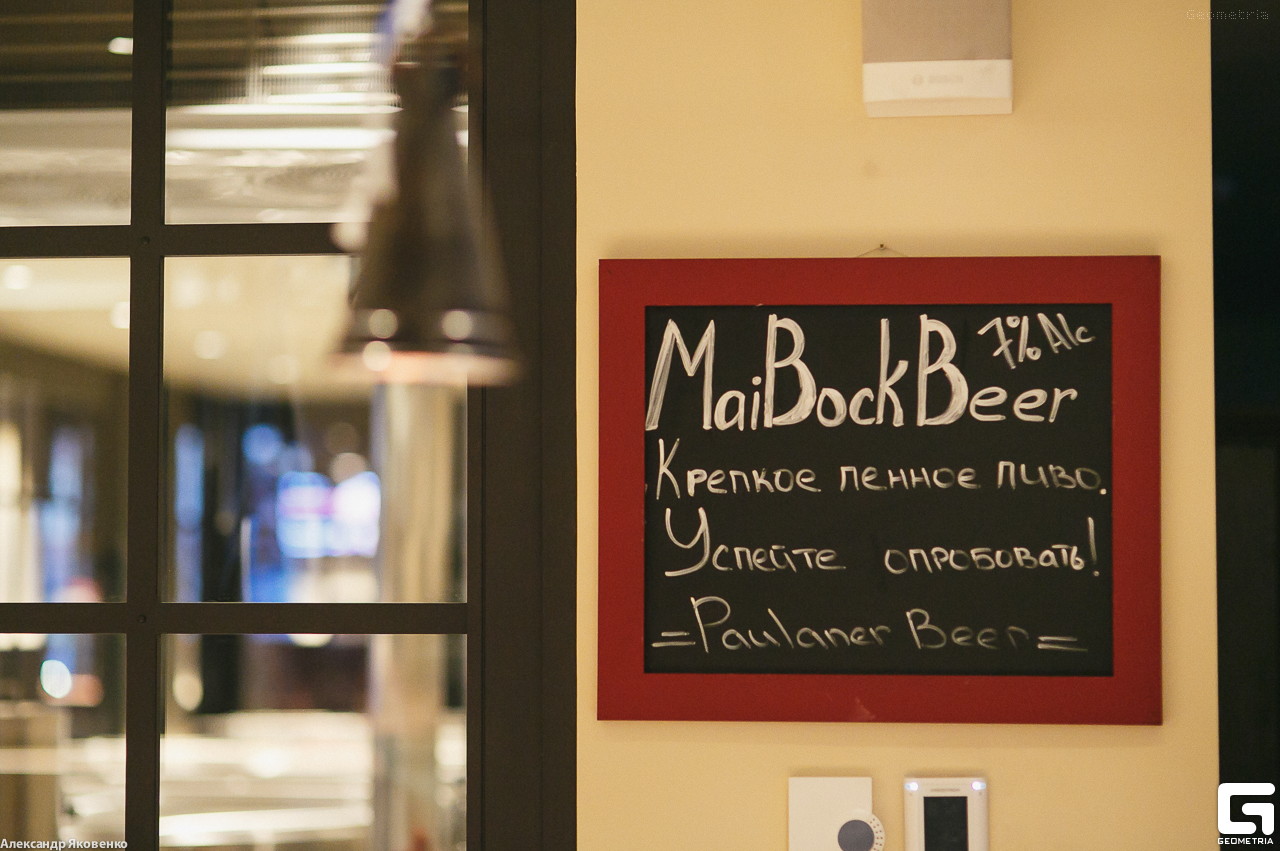 Geometria
BOSCH
MaiBockBeer 7% Alc
Крепкое пенное пиво.
Успейте опробовать!
=Paulaner Beer=
Александр Яковенко
GEOMETRIA